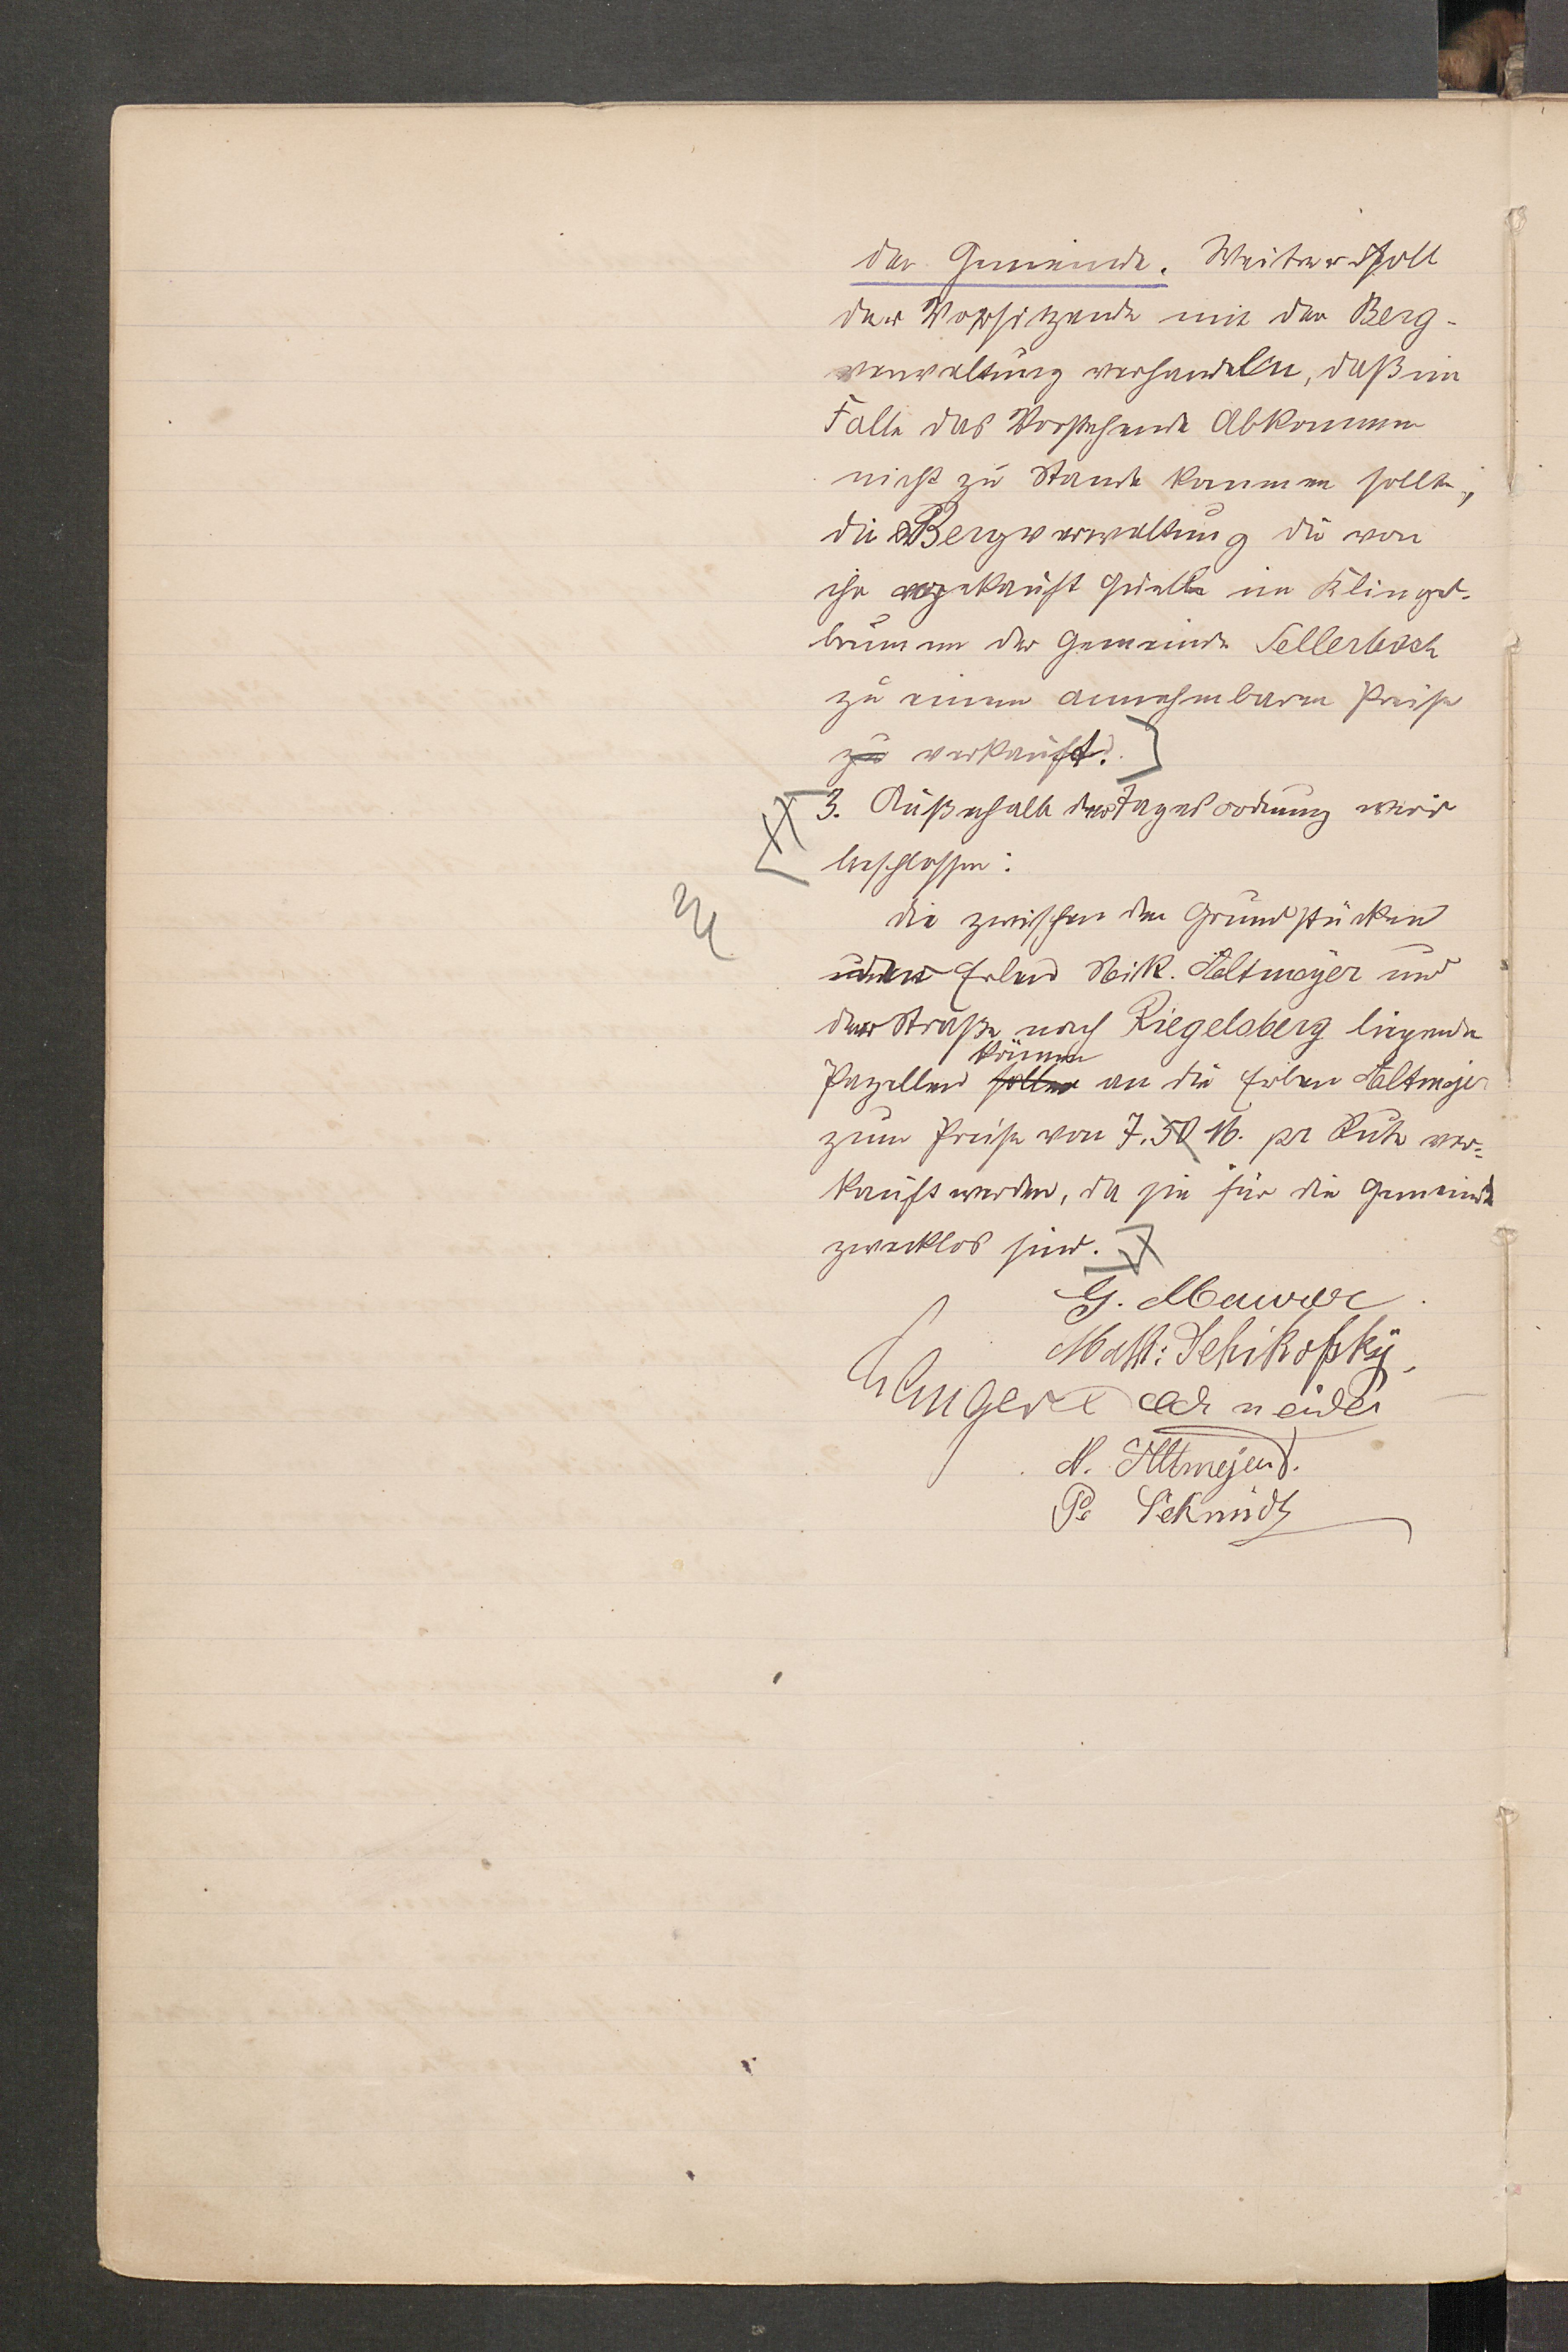 der Gemeinde. Weiter soll
der Vorsitzende mit der Berg-
verwaltung verhandeln, daß im
Falle das Vorstehende Abkommen
nicht zu Stande kommen sollte,
die Bergverwaltung die von
ihr gekauft Quelle im Klingel-
brunnen der Gemeinde Sellerbach
zu einem annehmbaren Preise
zu verkauft.
3. Außerhalb der Tagesordnung wird
beschlossen:
die zwischen den Grundstücken
der Erben Nik. Altmeyer und
der Straße nach Riegelsberg liegende
können
Pazellen sollen an die Erben Altmejer
zum Preise von 7.50 M. pr Rute ver-
kauft werden, da sie für die Gemeinde
zwecklos sind.
G. Maurer.
Math: Schikofsky,
Schneider
N. Altmejer.
P. Schmidt